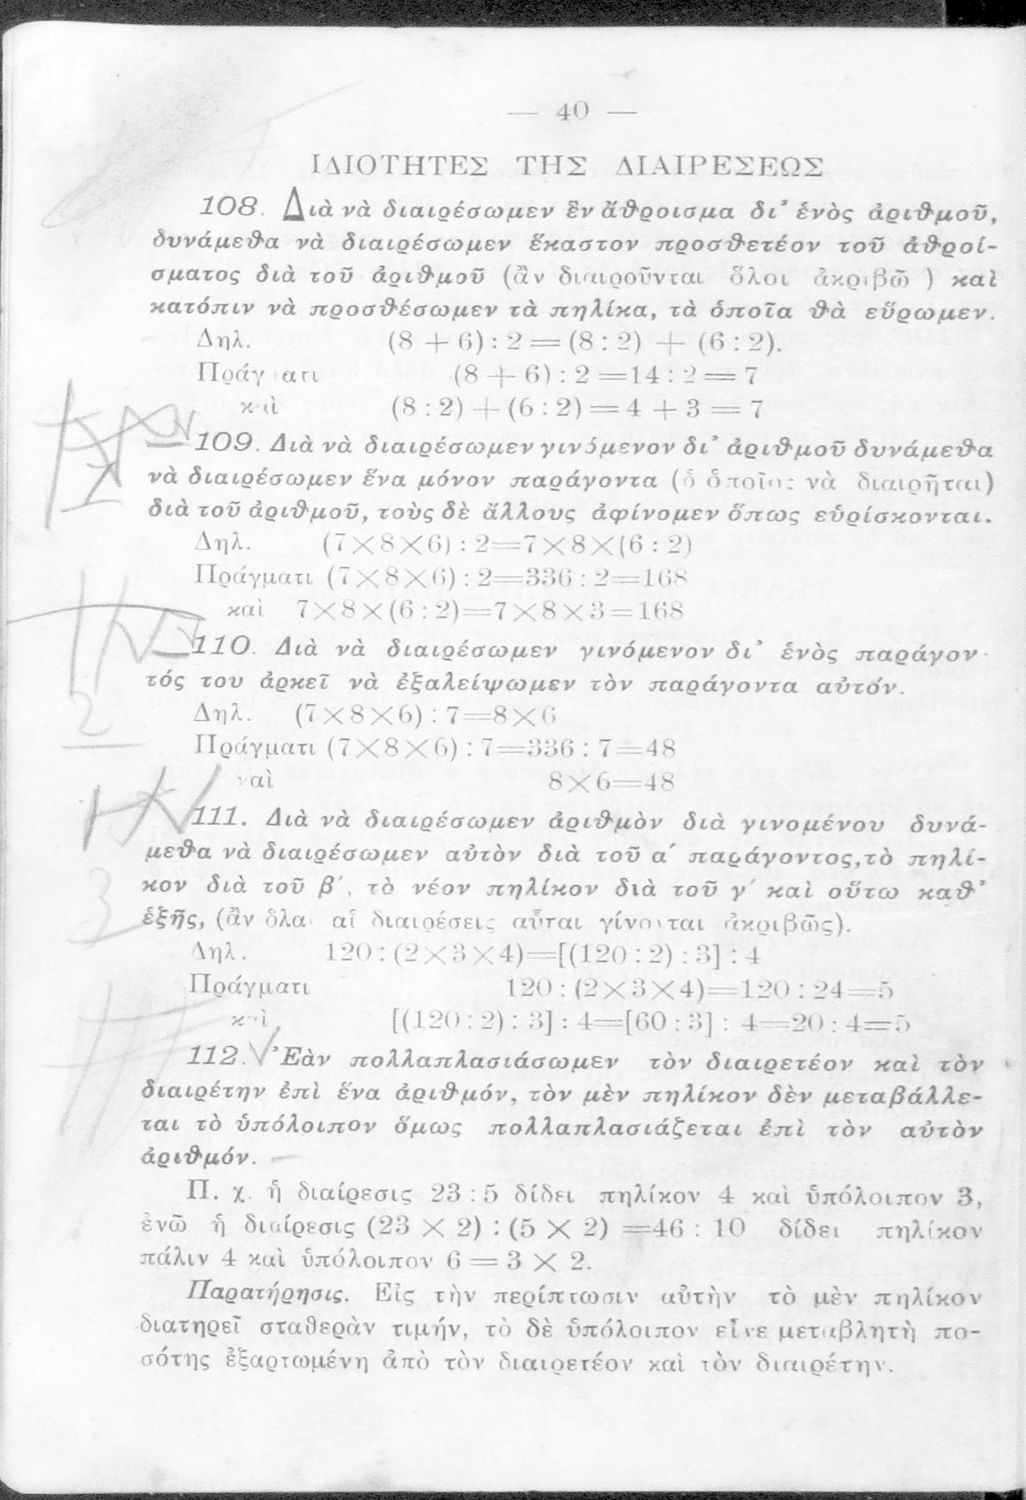 — 40 —
ΙΔΙΟΤΗΤΕΣ ΤΗΣ ΔΙΑΙΡΕΣΕΩΣ
108. Διὰ νὰ διαιρέσωμεν ἓν ἄθροισμα δι᾽ ἑνὸς ἀριθμοῦ,
δυνάμεθα νὰ διαιρέσωμεν ἕκαστον προσθετέον τοῦ ἀθροί-
σματος διὰ τοῦ ἀριθμοῦ (ἂν διαιροῦνται ὅλοι ἀκριβῶ ) καὶ
κατόπιν νὰ προσθέσωμεν τὰ πηλίκα, τὰ ὁποῖα θὰ εὕρωμεν.
Δηλ. (8 + 6) : 2 = (8 : 2) + (6 : 2).
Πράγ ατι (8 + 6) : 2 =14 : 2 = 7
καὶ (8 : 2) + (6 : 2) = 4 + 3 = 7
109. Διὰ νὰ διαιρέσωμεν γινόμενον δι᾽ ἀριθμοῦ δυνάμεθα
νὰ διαιρέσωμεν ἕνα μόνον παράγοντα (ὁ ὁποῖος νὰ διαιρῆται)
διὰ τοῦ ἀριθμοῦ, τοὺς δὲ ἄλλους ἀφίνομεν ὅπως εὑρίσκονται.
Δηλ. (7×8×6) : 2=7×8×(6 : 2)
Πράγματι (7×8×6) : 2=336 : 2=168
καὶ 7×8×(6 : 2)=7×8×3=168
110. Διὰ νὰ διαιρέσωμεν γινόμενον δι᾽ ἑνὸς παράγον-
τός του ἀρκεῖ νὰ ἐξαλείψωμεν τὸν παράγοντα αὐτόν.
Δηλ. (7×8×6) : 7=8×6
Πράγματι (7×8×6) : 7=336 : 7=48
καὶ 8×6=48
2
111. Διὰ νὰ διαιρέσωμεν ἀριθμὸν διὰ γινομένου δυνά-
μεθα νὰ διαιρέσωμεν αὐτὸν διὰ τοῦ α΄ παράγοντος,τὸ πηλί-
κον διὰ τοῦ β΄, τὸ νέον πηλίκον διὰ τοῦ γ΄ καὶ οὕτω καθ᾽
ἑξῆς, (ἂν ὅλαι αἱ διαιρέσεις αὗται γίνονται ἀκριβῶς).
3
Δηλ. 120 : (2×3×4)=[(120 : 2) : 3] : 4
Πράγματι 120 : (2×3×4)=120 : 24=5
καὶ [(120 : 2) : 3] : 4=[60 : 3] : 4=20 : 4=5
112. Ἐὰν πολλαπλασιάσωμεν τὸν διαιρετέον καὶ τὸν
διαιρέτην ἐπὶ ἕνα ἀριθμόν, τὸν μὲν πηλίκον δὲν μεταβάλλε-
ται τὸ ὑπόλοιπον ὅμως πολλαπλασιάζεται ἐπὶ τὸν αὐτὸν
ἀριθμόν.
Π. χ. ἡ διαίρεσις 23 : 5 δίδει πηλίκον 4 καὶ ὑπόλοιπον 3,
ἐνῶ ἡ διαίρεσις (23 × 2) : (5 × 2) =46 : 10 δίδει πηλίκον
πάλιν 4 καὶ ὑπόλοιπον 6 = 3 × 2.
Παρατήρησις. Εἰς τὴν περίπτωσιν αὐτὴν τὸ μὲν πηλίκον
διατηρεῖ σταθερὰν τιμήν, τὸ δὲ ὑπόλοιπον εἶνε μεταβλητὴ πο-
σότης ἐξαρτωμένη ἀπὸ τὸν διαιρετέον καὶ τὸν διαιρέτην.